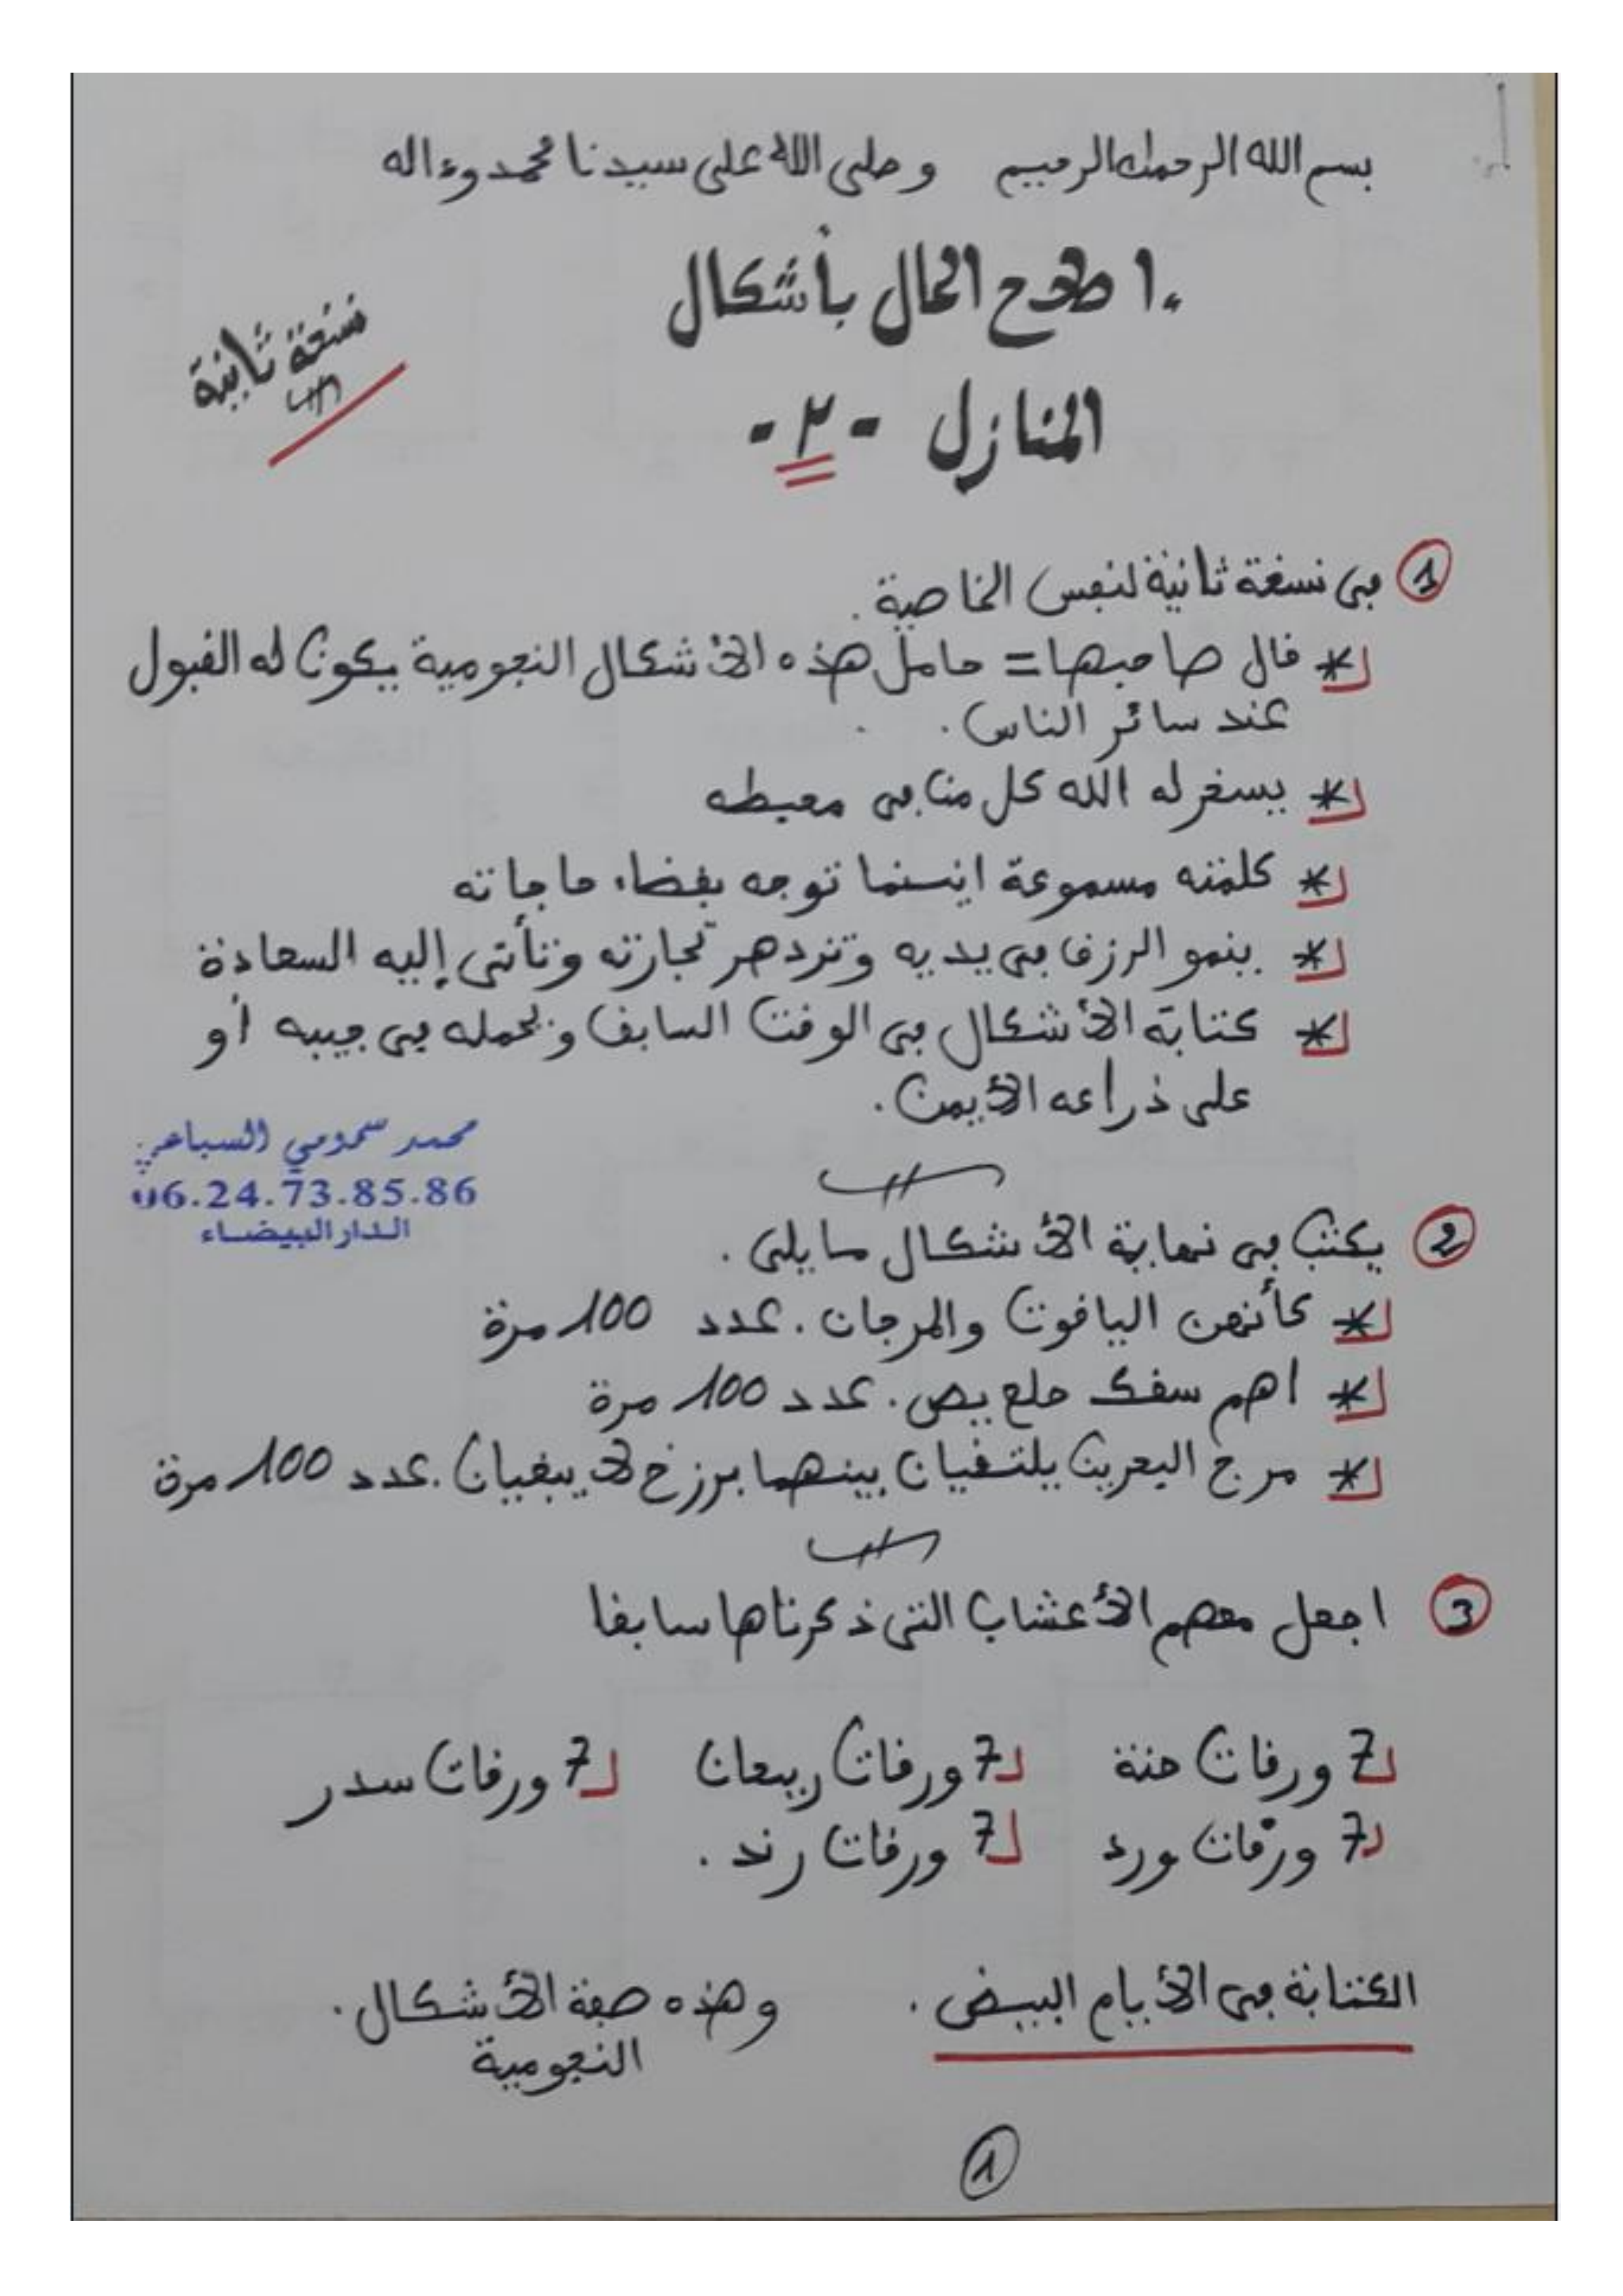 بسم الله الرحمان الرحيم وصلى الله على سيدنا محمد وءاله
اصلاح الحال بأشكال
المنازل - ٢ -
نسخة ثانية
1 في نسخة ثانية لنفس الخاصية.
* قال صاحبها = حامل هذه الأشكال النجومية يكون له القبول
عند سائر الناس.
* يسخر له الله كل من في محيطه
* كلمته مسموعة اينما توجه بقضاء حاجاته
* ينمو الرزق في يديه وتزدهر تجارته وتأتي إليه السعادة
* كتابة الأشكال في الوقت السابق ويحمله في جيبه أو
على ذراعه الأيمن.
محمد سمومي السباعي
06.24.73.85.86
الدار البيضاء
2 يكتب في نهاية الأشكال ما يلي.
* كأنهن الياقوت والمرجان. عدد 100 مرة
* اهم سقك حلع يص. عدد 100 مرة
* مرج البحرين يلتقيان بينهما برزخ لا يبغيان. عدد 100 مرة
3 اجعل معهم الأعشاب التي ذكرناها سابقا
7 ورقات حنة 7 ورقات ريحان 7 ورقات سدر
7 ورقات ورد 7 ورقات رند.
الكتابة في الأيام البيض. وهذه صفة الأشكال.
النجومية
1